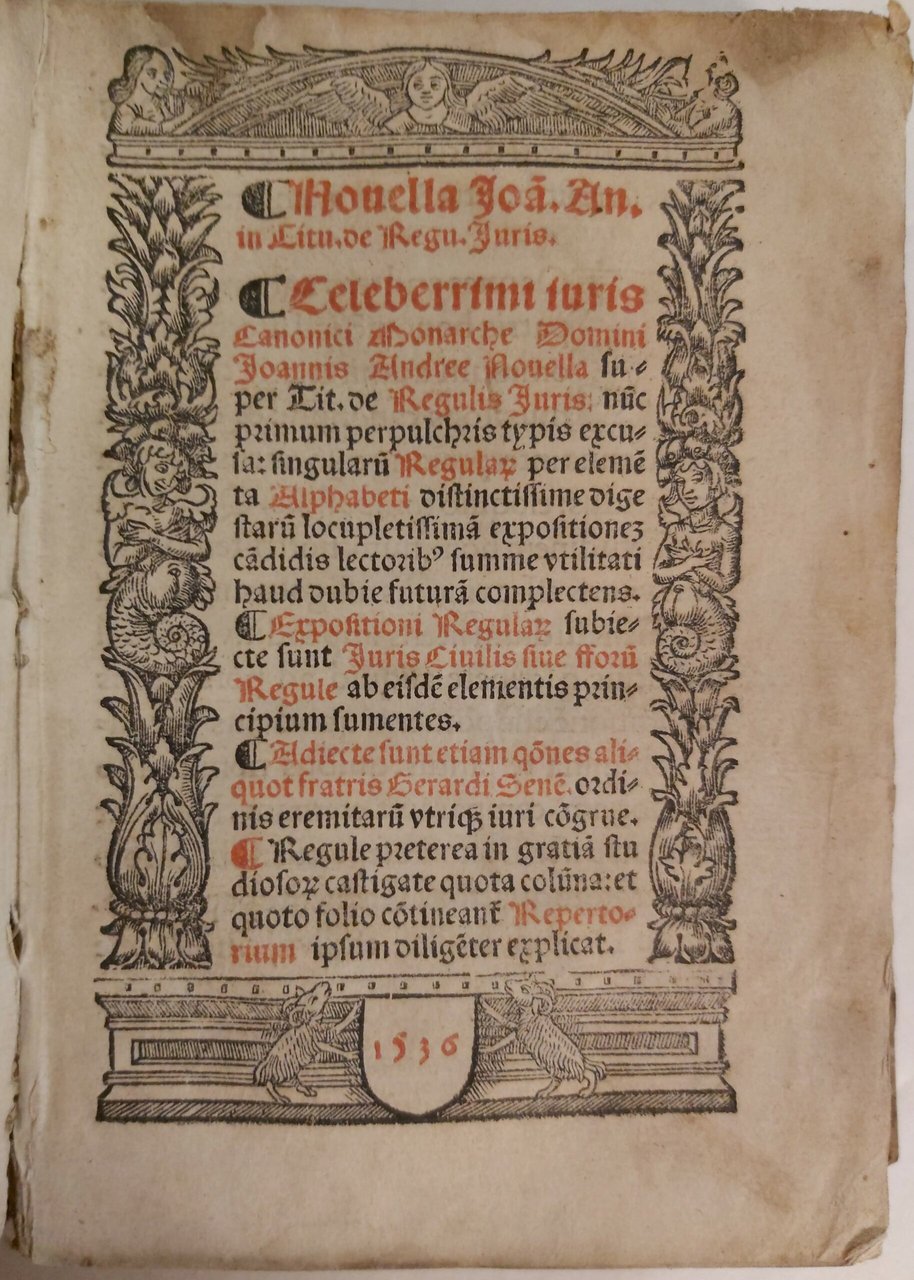 ¶Nouella Joã. An.
in Titu. de Regu. Juris.
¶Celeberrimi iuris
Canonici Monarche Domini
Joannis Andree Nouella su⸗
per Tit. de Regulis Juris: nũc
primum perpulchris typis excu⸗
sa: singularũ Regulaꝝ per elemẽ
ta Alphabeti distinctissime dige
starũ locupletissimã expositioneꝫ
cãdidis lectoribꝰ summe vtilitati
haud dubie futurã complectens.
¶Expositioni Regulaꝝ subie⸗
cte sunt Juris Ciuilis siue fforũ
Regule ab eisdẽ elementis prin⸗
cipium sumentes.
¶Adiecte sunt etiam qõnes ali⸗
quot fratris Gerardi Senẽ. ordi⸗
nis eremitarũ vtriqꝫ iuri cõgrue.
¶Regule preterea in gratiã stu
diosoꝝ castigate quota colũna: et
quoto folio cõtineant᷑ Reperto⸗
rium ipsum diligẽter explicat.
1536